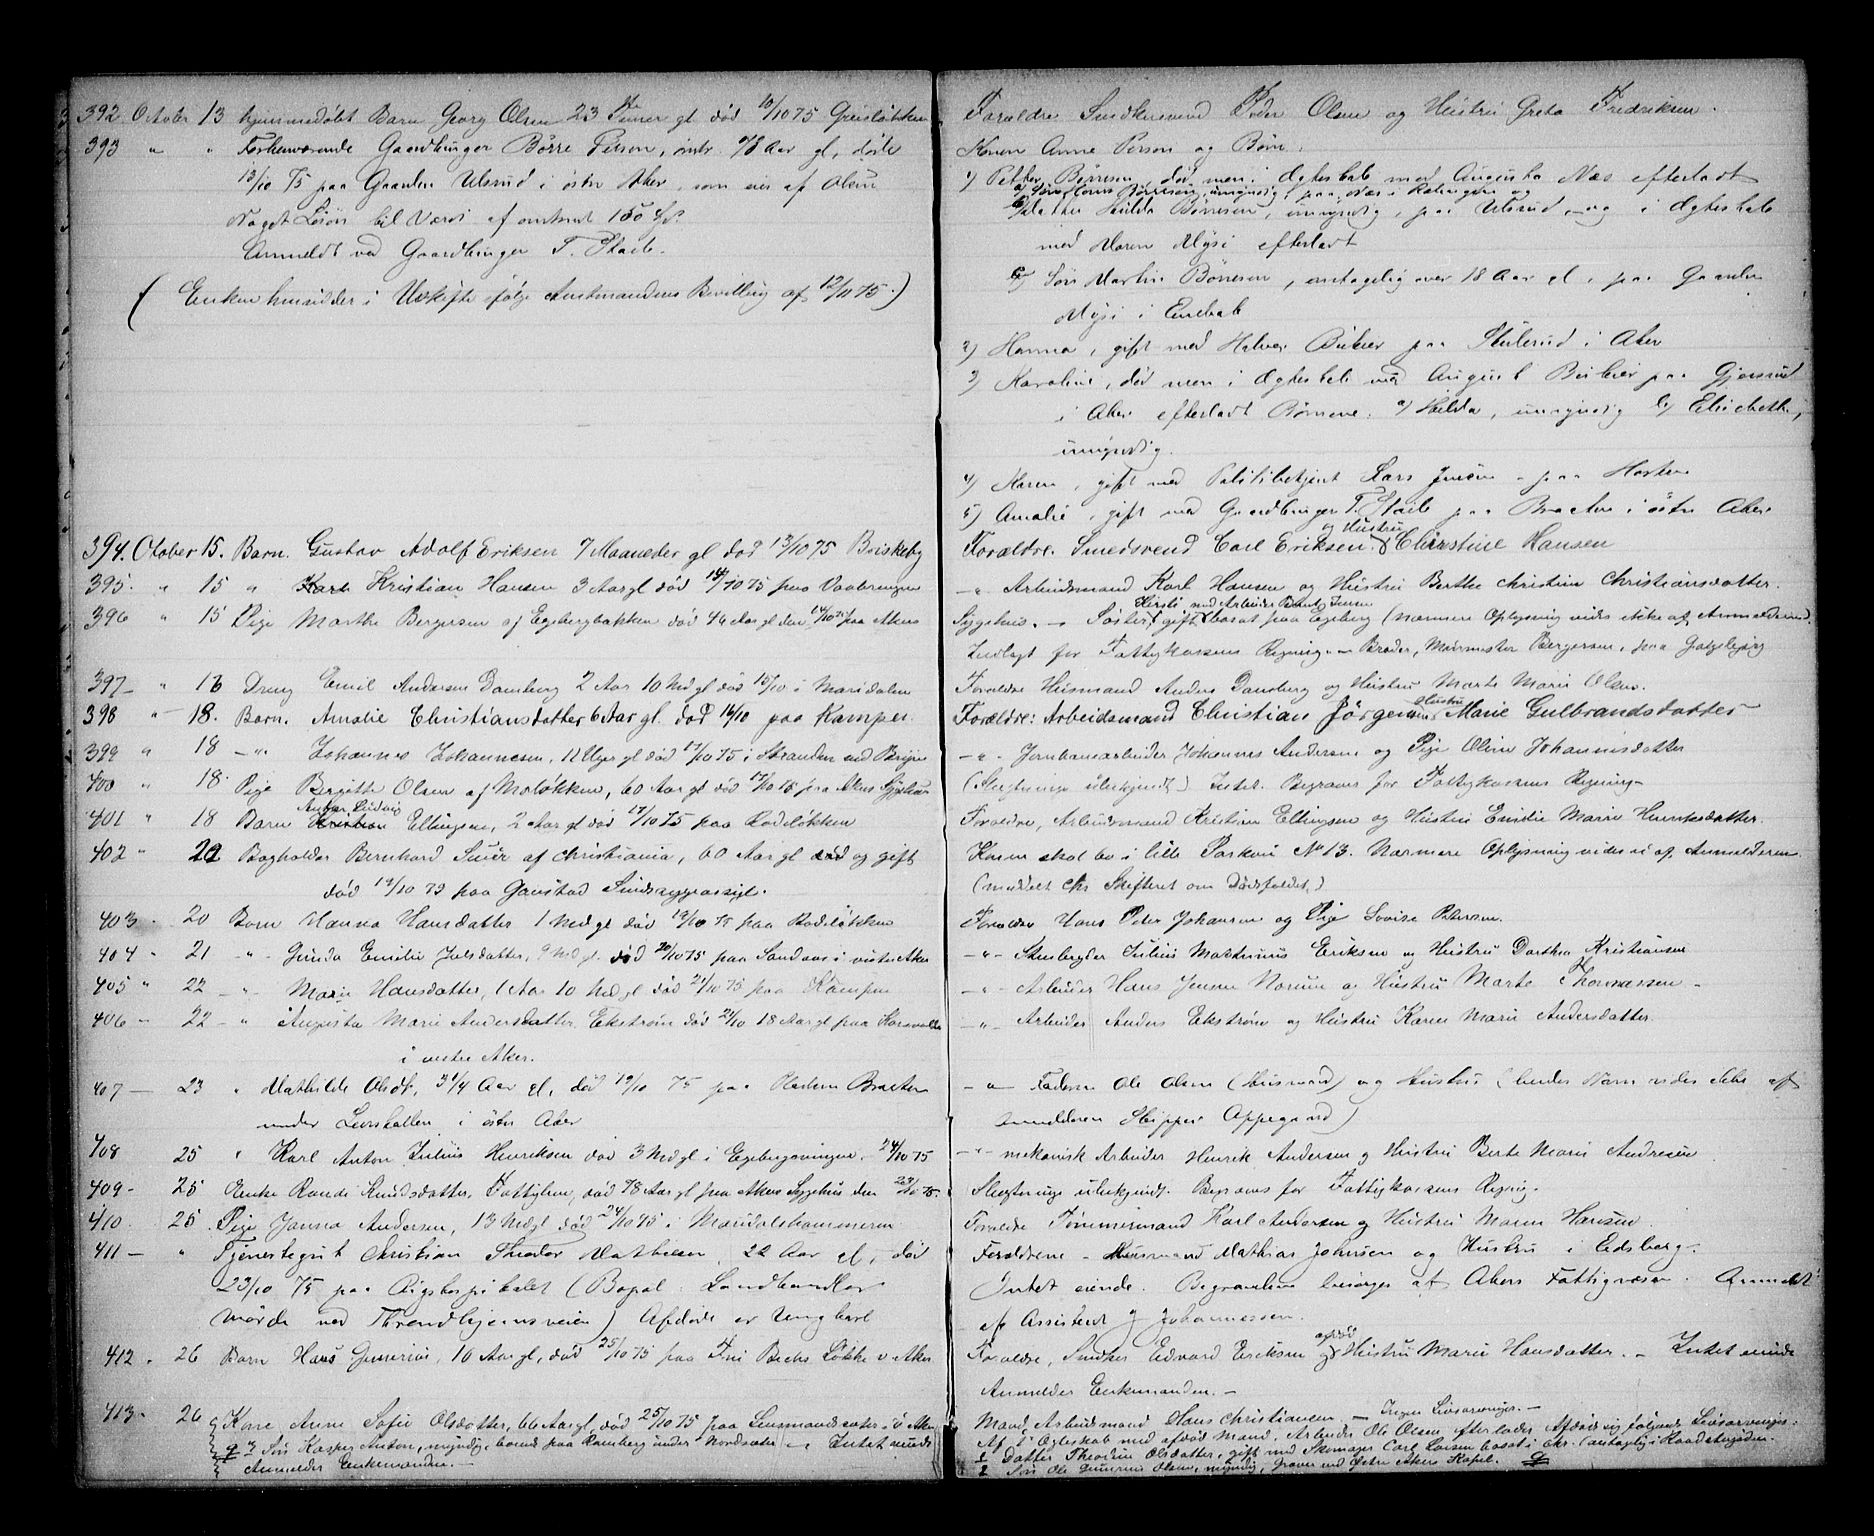 392 October 13 hjemmedøbt Barn Georg Olsen 23 Timer gl død 10/10 75
393 " " Forhenværende Gaardbruger Börre Person, omtr. 78 Aar gl, døde
13/10 75 paa Gaarden Ulsrud i østre Aker, som eies af
Noget Løsøre til Værdi af omtrent 150 Spd
Anmeldt ved Gaardbruger T. Stade.
(Enken hensidder i Uskifte ifølge Amtmandens Bevilling af 12/11 75.)
394. October 15. Barn. Gustav Adolf Eriksen 7 Maaneder gl død 13/10 75 Briskeby
395. " 15 " Karl Kristian Hansen 3 Aar gl død 14/10 75 paa Vaalerengen
396 " 15 Pige Marthe Bergersen af Egebergbakken død 46 Aar gl den 14/10 75 paa Akers
397 - " 16 Dreng Emil Andersen Damberg 2 Aar 10 Mdgl død 15/10 i Maridalen
398 " 18. Barn. Amalie Christiansdatter 6 Aar gl. død 16/10 paa Kampen.
399 " 18 - " Johannes Johannesen, 11 Uger gl død 17/10 75 i Stranden ved Bryn
400 " 18. Pige Birgitte Olsen af Moløkken, 60 Aar gl død 17/10 75 paa Akers Sygehus
401 " 18 Barn Anton Ludvig Ellingsen, 2 Aar gl død 17/10 75 paa Rodeløkken
402 " 20 Bogholder Bernhard af Christiania, 60 Aar gl og gift
død 19/10 75 paa Gaustad Sindssygeasyl.
403 - 20 Barn Hanna Hansdatter 1 Mdgl død 19/10 75 paa Rodeløkken
404 - 21 - " - Gunda Emilie Julsdatter, 9 Mdgl. død 20/10 75 paa i vestre Aker
405 " 22 - " Marie Hansdatter, 1 Aar 10 Mdgl død 21/10 75 paa Kampen
406 - 22 - " Augusta Marie Andersdatter Ekstrøm død 21/10 18 Aar gl paa
i vestre Aker.
407 - 23 " Mathilde Olsdt, 3 1/4 Aar gl, død 19/10 75 paa Pladsen Braaten
under i østre Aker
408 25 " Karl Anton Julius Henriksen død 3 Mdgl i 24/10 75
409 - 25 Enke Randi Knudsdatter, Fattiglem, død 78 Aar gl paa Akers Sygehus den 23/10 75.
410 25 Pige Janna Andersen, 13 Mdgl død 24/10 75 i Maridalshammeren
411 - " Tjenestegut Christian Theodor Mathisen, 22 Aar gl, død
23/10 75 paa Rigshospitalet (Bopæl Landhandler
ved Throndhjemsveien) Afdøde er Ungkarl
412 - 26 Barn Hans Gunerius, 10 Aar gl, død 25/10 75 paa Løkke v Aker
413 - 26 Kone Anne Sofie Olsdatter, 66 Aar gl, død 25/10 75 paa Ø. Aker
3 Søn Kasper Anton, myndig, boende paa Ramberg under - Intet eiende
Anmelder Enkemanden. -
Forældre Peder Olsen og Hustru Grete Fredriksen.
Konen Anne Person og Børn:
1) Petter Börresen, død, men i Ægteskab med Augusta Næs efterladt
a) Søn Hans Börresen, umyndig, paa Næs i og
b) Datter Hilda Börresen, umyndig, paa Ulsrud, og i Ægteskab
med Maren Mysi efterladt
c) Søn Martin Börresen, antagelig over 18 Aar gl, paa Gaarden
Mysi i Enebak
2) Hanna, gift med Halvor paa i Aker
3) Karoline, død men i Ægteskab med August paa Gjersrud
i Aker efterladt Børnene: a) Hilda, umyndig b) Elisabeth,
umyndig.
4) Karen, gift med Politibetjent Lars Jensen paa
5) Amalie, gift med Gaardbruger T. Stade paa Braaten i østre Aker
Forældre. Smedsvend Carl Eriksen og Hustru Christine Hansen
- " Arbeidsmand Karl Hansen og Hustru Berthe Christine Christiansdatter.
Sygehus. - Søster Kirsti gift med Arbeider Jensen bosat paa Egeberg (nærmere Oplysning vides ikke af Anmelderen).
Indlagt for Fattigkassens Regning. - Broder, Murmester Bergersen, paa
Forældre Husmand Anders Damberg og Hustru Marte Marie Olsen.
Forældre: Arbeidsmand Christian Jörgensen Hustru Marie Gulbrandsdatter
- " - Jernbanearbeider Johannes Andersen og Pige Oline Johannesdatter
(Slægtninge ubekjendt) Intet. Begraves for Fattigkassens Regning.
Forældre, Arbeidsmand Kristian Ellingsen og Hustru Emilie Marie
Konen skal bo i lille No 13. Nærmere Oplysning vides ei af Anmelderen.
(meddelt Chr Skifteret om Dødsfaldet.)
Forældre Hans Peder Johansen og Pige Lovise Petersen.
- " - Julius Martinius Eriksen og Hustru Dorthea Kristiansen
- " - Arbeider Hans Jensen og Hustru Marte Thomassen -
- " - Arbeider Anders Ekstrøm og Hustru Karen Marie Andersdatter.
- " - Faderen Ole Olsen (Husmand) og Hustru (hendes Navn vides ikke af
Anmelderen Skipper Oppegaard)
- " - mekanisk Arbeider Henrik Andersen og Hustru Berte Marie Andresen
Slægtninge ubekjendt. Begraves for Fattigkassens Regning.
Forældre Tømmermand Karl Andersen og Hustru Maren Hansen.
Forældrene - Husmand Mathias Johnsen og Hustru i Eidsberg.
Intet eiende. Begravelsen besørges af Akers Fattigvæsen. Anmeldt
af Assistent J Johannessen.
Forældre, Snedker Edvard Eriksen og afdød Hustru Marie Hansdatter. - Intet eiende
Anmelder Enkemanden. -
Mand, Arbeidsmand Hans Christiansen - Ingen Livsarvinger. -
Af 1' Ægteskab med afdød Mand, Arbeider Ole Olsen efterlader Afdøde sig følgende Livsarvinger:
1 Datter Theodine Olsdatter, gift med Skomager Carl Larsen bosat i Chr. (antagelig i
2 Søn Ole Gunerius Olsen, myndig, Graver ved Østre Akers Kapel.